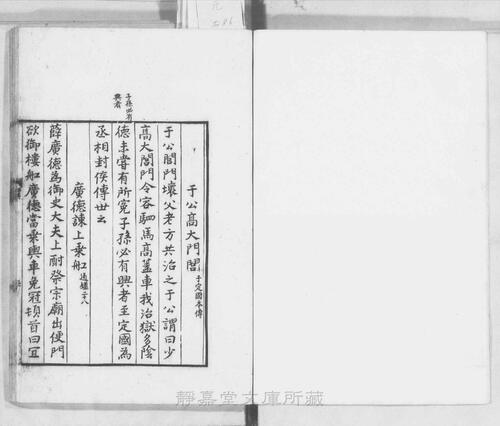 于公高大門閭 于定國本傳
于公閭門壞父老方共治之于公謂曰少
高大閭門令容駟馬高蓋車我治獄多陰
德未嘗有所冤子孫必有興者至定國為
丞相封侯傳世云
子孫必有
興者
廣德諫上乘船 通鑑二十八
薛廣德為御史大夫上酎祭宗廟出便門
欲御樓船廣德當乘輿車免冠頓首曰宜
靜嘉堂文庫所藏